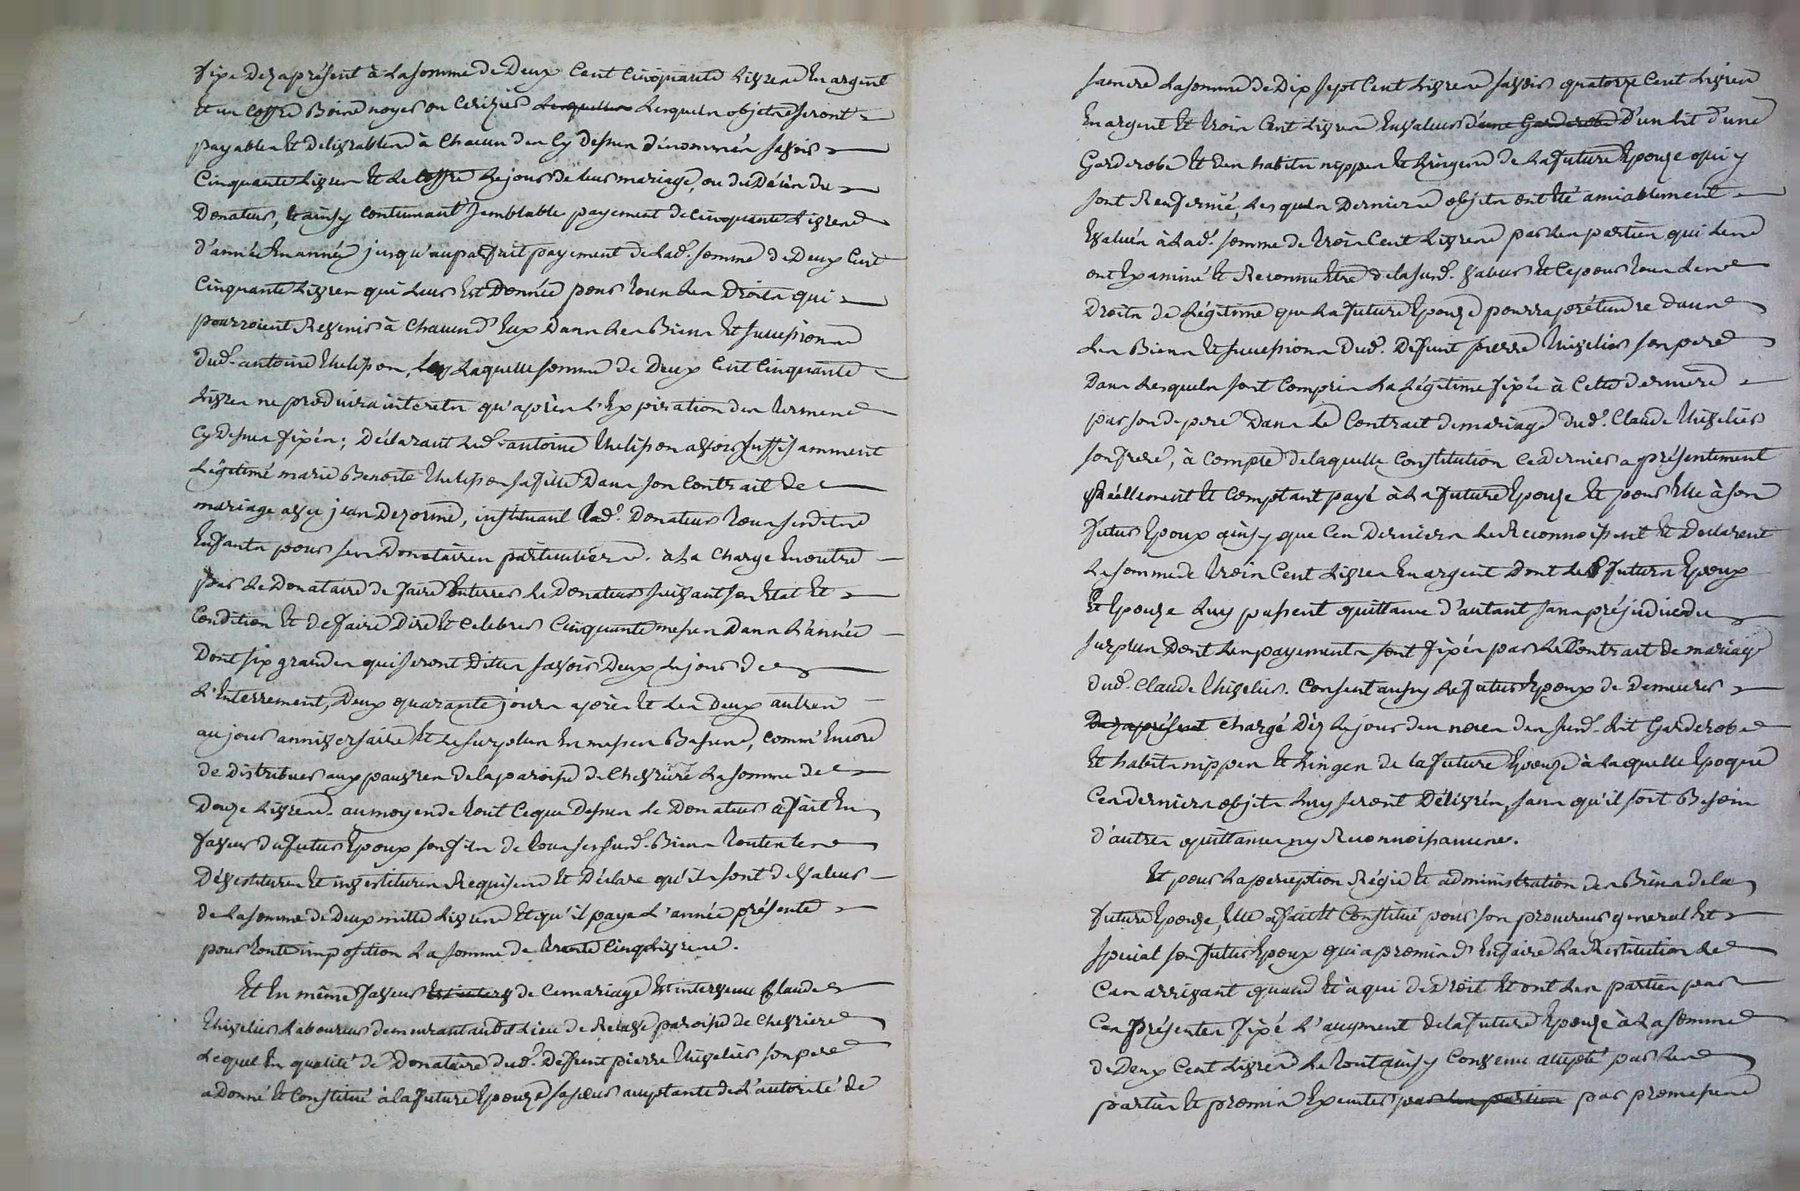 fixé dez aprésent à la somme de Deux Cent Cinquante Livres En argent
Et un Coffre Boire noyer ou Cerizier Lesquelles Lesquels objets seront
payables Et Delivrables à Chacun des Cy dessus dénommés savoir
Cinquante Livres Et Le Coffre Le jour de leur mariage, ou du Décès du
Donateur, Et ainsy continuant semblable payement de Cinquante Livres
d'année En année jusqu'au parfait payement de Lad. somme de Deux Cent
Cinquante Livres qui Leur Est Donnée pour tous Les Droits qui
pourroient Revenir à Chacun d'Eux Dans Les Biens Et successions
dud. antoine thelisson, Laquelle somme de Deux Cent Cinquante
Livres ne produira interets qu'après L'Expiration des termes
Cy dessus fixés; Déclarant Led. antoine thelisson avoir suffisamment
Légitimé marie Benoite thelisson sa fille Dans son Contrait de
mariage avec jean Dezormé, instituant Led. Donateur tous sesdites
Enfants pour ses Donataires particulières. à La Charge En outre
par Le Donataire de faire Enterrer Le Donateur suivant son Etat Et
Condition Et de faire Dire Et Celebrer Cinquante messes Dans L'année
Dont six grandes qui seront Dites savoir Deux Le jour de
L'Enterrement, Deux quarante jours après Et Les Deux autres
au jour anniversaire Et Le surplus En messes Basses, comm' Encore
de distribuer aux pauvres de la paroisse de Chevriere La somme de
Douze Livres. au moyen de tout Ce que Dessus Le Donateur a fait En
faveur du futur Epoux son fils de tous ses susd. Biens toutes les
Dévestitures Et investitures Requises Et Déclare qu'ils sont de valeur
de La somme de Deux mille Livres Et qu'il paye L'année présente
pour toute imposition La somme de trante Cinq Livres.
Et En même faveur de Ce mariage Est intervenu Claude
thivelier Laboureur demeurant audit Lieu de Relave paroisse de Chevriere
Lequel En qualité de Donataire dud. Deffunt pierre thivelier son pere
a Donné Et Constitué à la future Epouze sa sœur acceptante de L'autorité de
sa mere La somme de Dix sept Cent Livres savoir quatorze Cent Livres
En argent Et trois Cent Livres En valeur d'une Garderobe D'un Lit d'une
Garderobe Et des habits nippes Et Linges de La future Epouze qui y
sont Renfermé, Lesquels Derniers objets ont été amiablement
Evalués à Lad. somme de trois Cent Livres par Les parties qui Les
ont Examiné Et Reconnu Etre de la susd. valeur Et Ce pour tous Les
Droits de Légitime que La future Epouze pourra prétendre dans
Les Biens Et successions dud. Défunt pierre thivelier son pere
Dans Lesquels sont Compris La Légitime fixée à Cette derniere
par sond. pere Dans Le Contrait de mariage dud. Claude thivelier
son frere, à Compte de laquelle Constitution Ce dernier a présentement
Réellement Et Comptant payé à La future Epouze Et pour Elle à son
futur Epoux ainsy que Ces Derniers Le Reconnoissent Et Declarent
La somme de trois Cent Livres En argent Dont Les futurs Epoux
Et Epouze Luy passent quittance d'autant sans préjudice du
surplus Dont Les payements sont fixés par Le Contrait de mariage
dud. Claude thivelier. Consent aussy Le futur Epoux de Demeurer
Dez aprésent chargé Dèz Le jour des noces des susd. Lit Garderobe
Et habits nippes Et Linges de la future Epouze à Laquelle Epoque
Ces derniers objets Luy seront Délivrés, sans qu'il soit Besoin
d'autres quittances ny Reconnoissances.
Et pour La perception Régie Et administration des Biens de la
future Epouze, Elle a fait Et Constitué pour son procureur general Et
spécial son futur Epoux qui a promis d'En faire La Restitution Le
Cas arrivant quand Et à qui de Droit Et ont Les parties par
Ces présentes fixé L'augment de la future Epouze à La somme
de Deux Cent Livres Le tout ainsy Convenu accepté par Les
parties Et promis Executer par Les parties par promesses